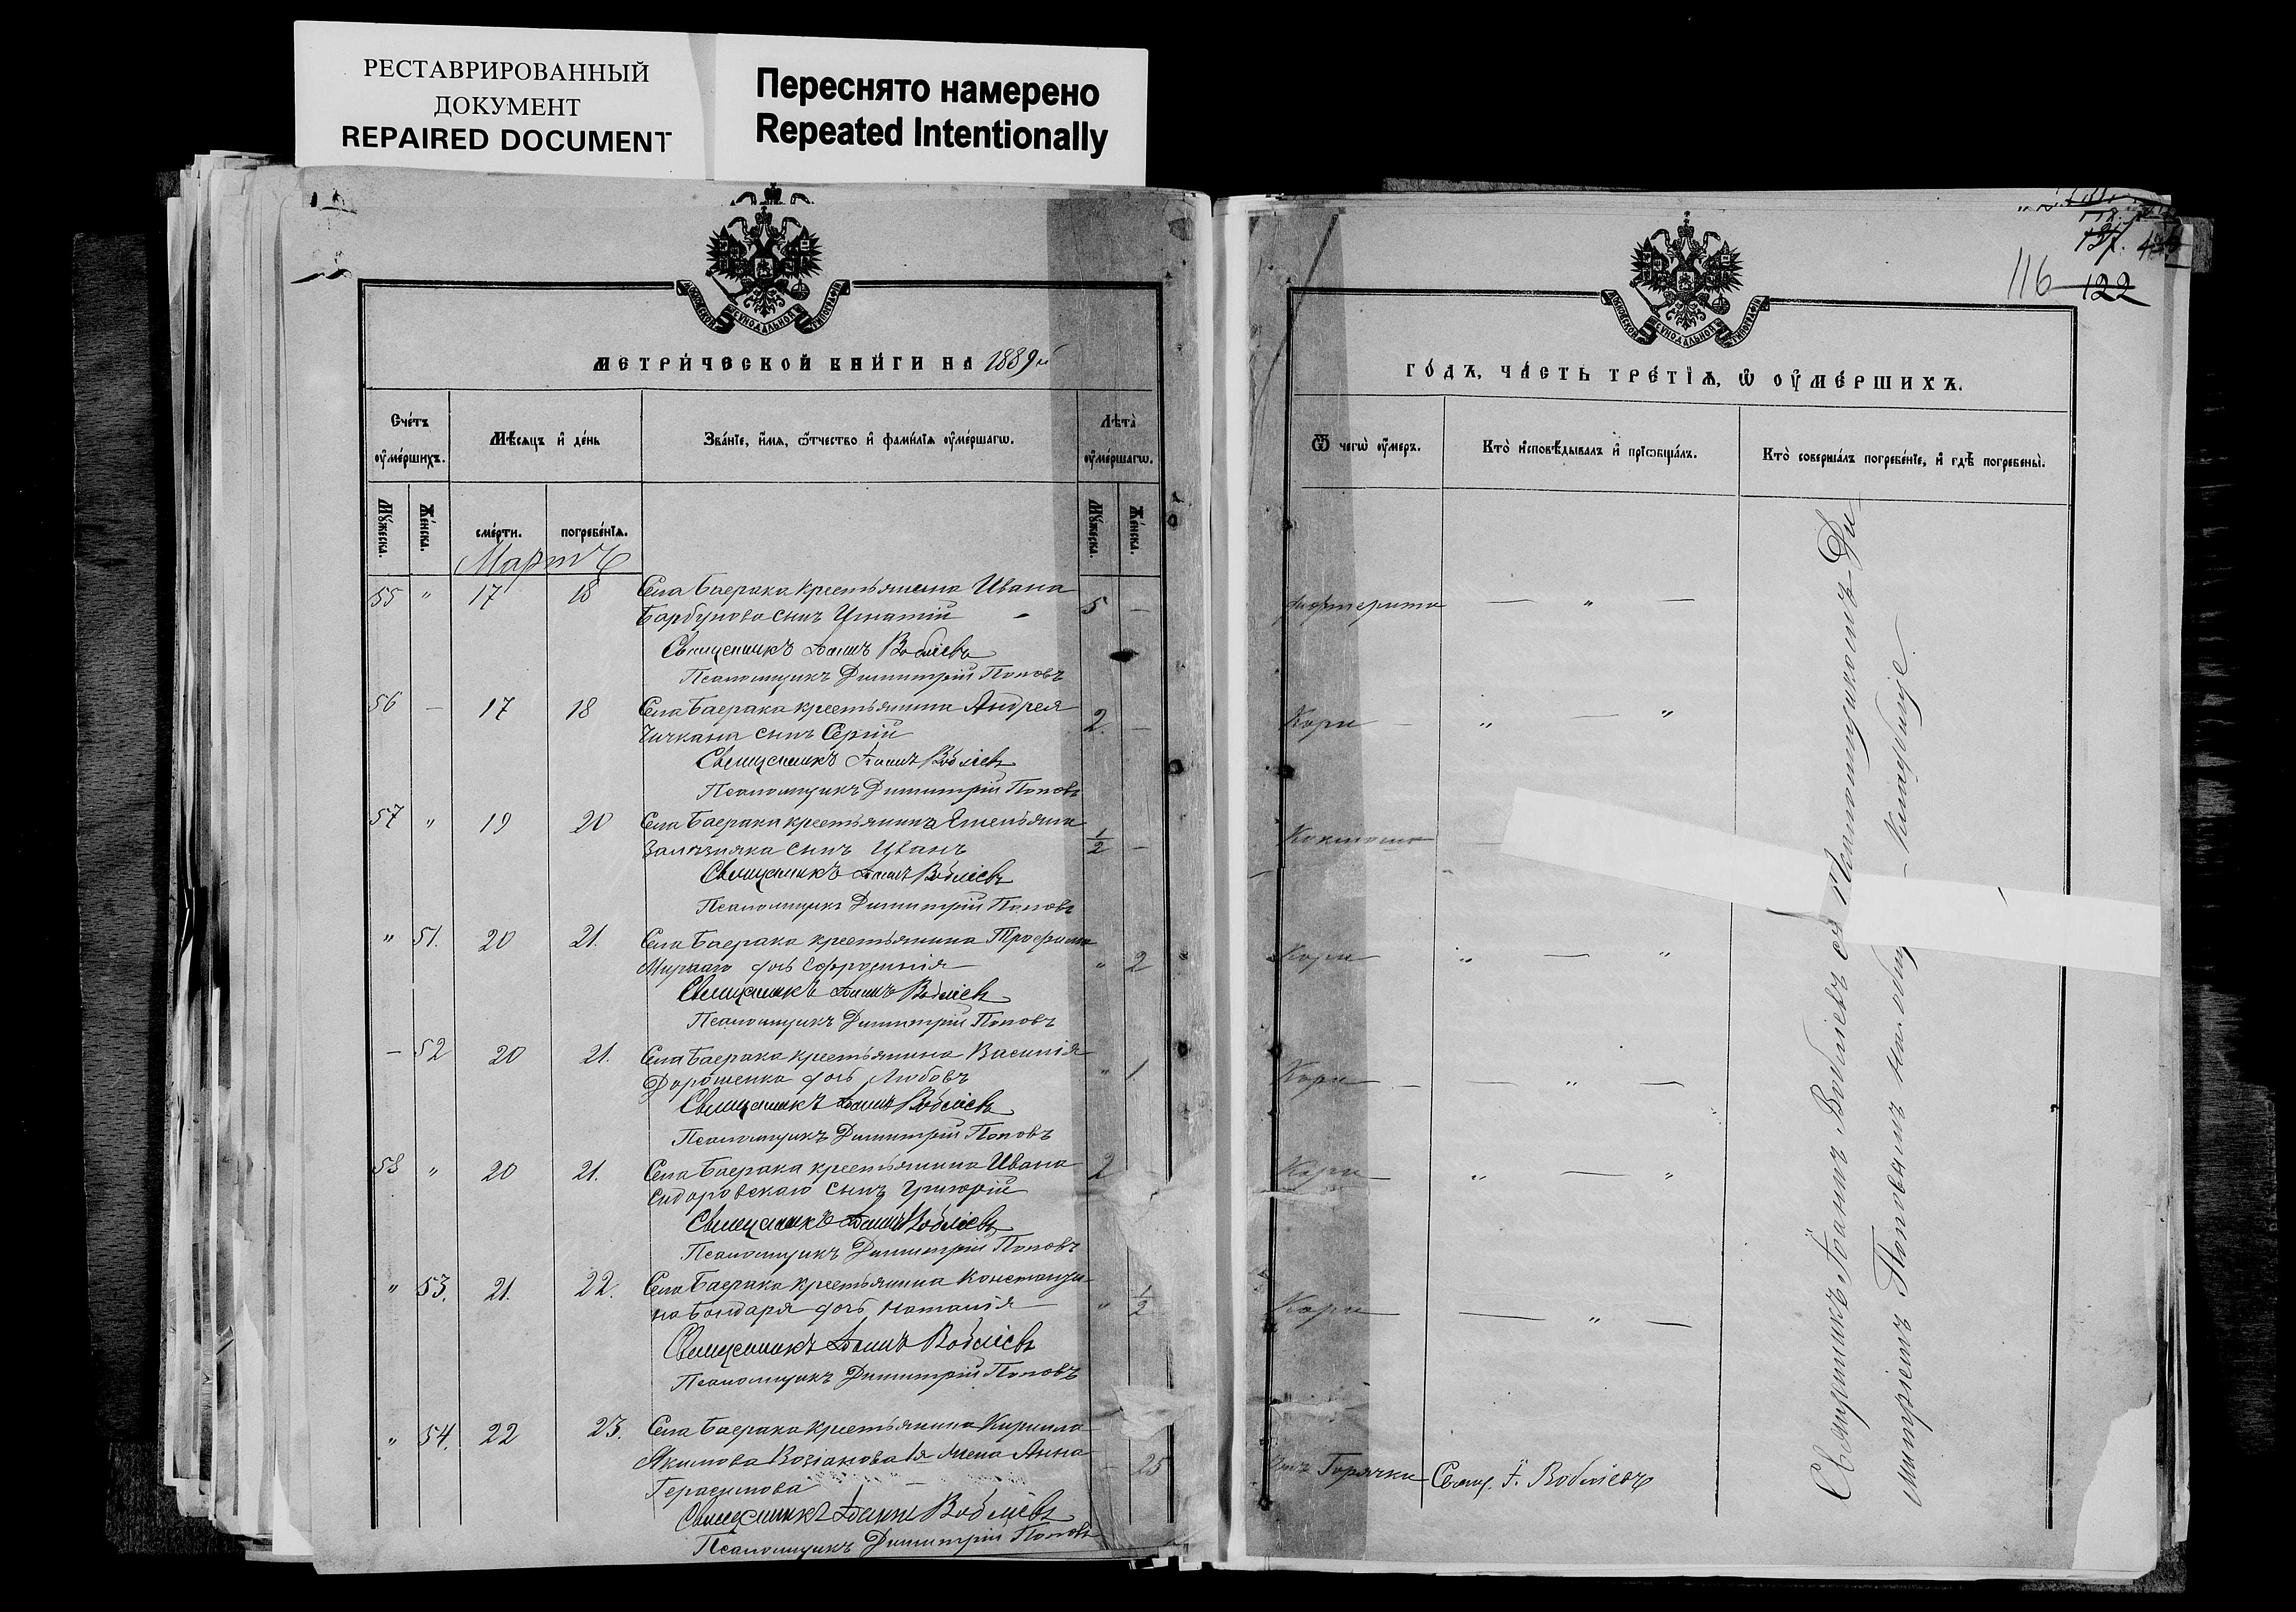 РЕСТАВРИРОВАННЫЙ
ДОКУМЕНТ
REPAIRED DOCUMENT
Переснято намерено
Repeated Intentionally
МОСКОВСКОЙ СѴНОДАЛЬНОЙ ТИПОГРАФІИ
МЕТРИ́ЧЕСКОЙ КНИ́ГИ НА 1889й
Сче́тъ ᲂу҆ме́ршихъ.
Мѣ́сяцъ и҆ де́нь
Зва́нїе, и҆́мѧ, ѻ҆́тчество и҆ фами́лїѧ ᲂу҆ме́ршагѡ.
Лѣта̀ ᲂу҆ме́ршагѡ.
Мꙋ́жеска.
Же́нска.
сме́рти.
погребе́нїѧ.
Мꙋ́жеска.
Же́нска.
Мартъ
55 " 17 18 Села Баерака крестьянина Ивана 5 —
Барбунова сынъ Игнатій
Священникъ Іоаннъ Вобліевъ
Псаломщикъ Димитрій Поповъ
56 — 17 18 Села Баерака крестьянина Андрея 2. —
Чичкана сынъ Сергій
Священникъ Іоаннъ Вобліевъ
Псаломщикъ Димитрій Поповъ
57 " 19 20 Села Баерака крестьянина Емельяна 1/2 —
сынъ Иванъ
Священникъ Іоаннъ Вобліевъ
Псаломщикъ Димитрій Поповъ
" 51. 20 21. Села Баерака крестьянина Трофима " 2
дочь Ефросинія
Священникъ Іоаннъ Вобліевъ
Псаломщикъ Димитрій Поповъ
— 52 20 21. Села Баерака крестьянина Василія " 1
Дорошенка дочь Любовь
Священникъ Іоаннъ Вобліевъ
Псаломщикъ Димитрій Поповъ
58 " 20 21. Села Баерака крестьянина Ивана 2
Сидоровскаго сынъ Григорій
Священникъ Іоаннъ Вобліевъ
Псаломщикъ Димитрій Поповъ
" 53. 21. 22. Села Баерака крестьянина Константи-
на Бондаря дочь Наталія " 1/2
Священникъ Іоаннъ Вобліевъ
Псаломщикъ Димитрій Поповъ
" 54. 22 23. Села Баерака крестьянина Кирилла
Якимова Козіакова 1я жена Анна — 25
Герасимова
Священникъ Іоаннъ Вобліевъ
Псаломщикъ Димитрій Поповъ
116 122
МОСКОВСКОЙ СѴНОДАЛЬНОЙ ТИПОГРАФІИ
ГО́ДЪ, ЧА́СТЬ ТРЕ́ТЇѦ, Ѡ҆ ОУ҆МЕ́РШИХЪ.
Ѿ чегѡ̀ ᲂу҆́меръ.
Кто̀ и҆сповѣ́дывалъ и҆ прїѡбща́лъ.
Кто̀ соверша́лъ погребе́нїе, и҆ гдѣ̀ погребены̀.
дифтерита — " —
Кори — " — "
Коклюша —
Кори " — "
Кори — — " —
Кори " — "
Кори — " —
Отъ Горячки Свящ. І. Вобліевъ
Священникъ Іоаннъ Вобліевъ съ Псаломщикомъ Ди-
митріемъ Поповымъ на общ кладбищѣ.